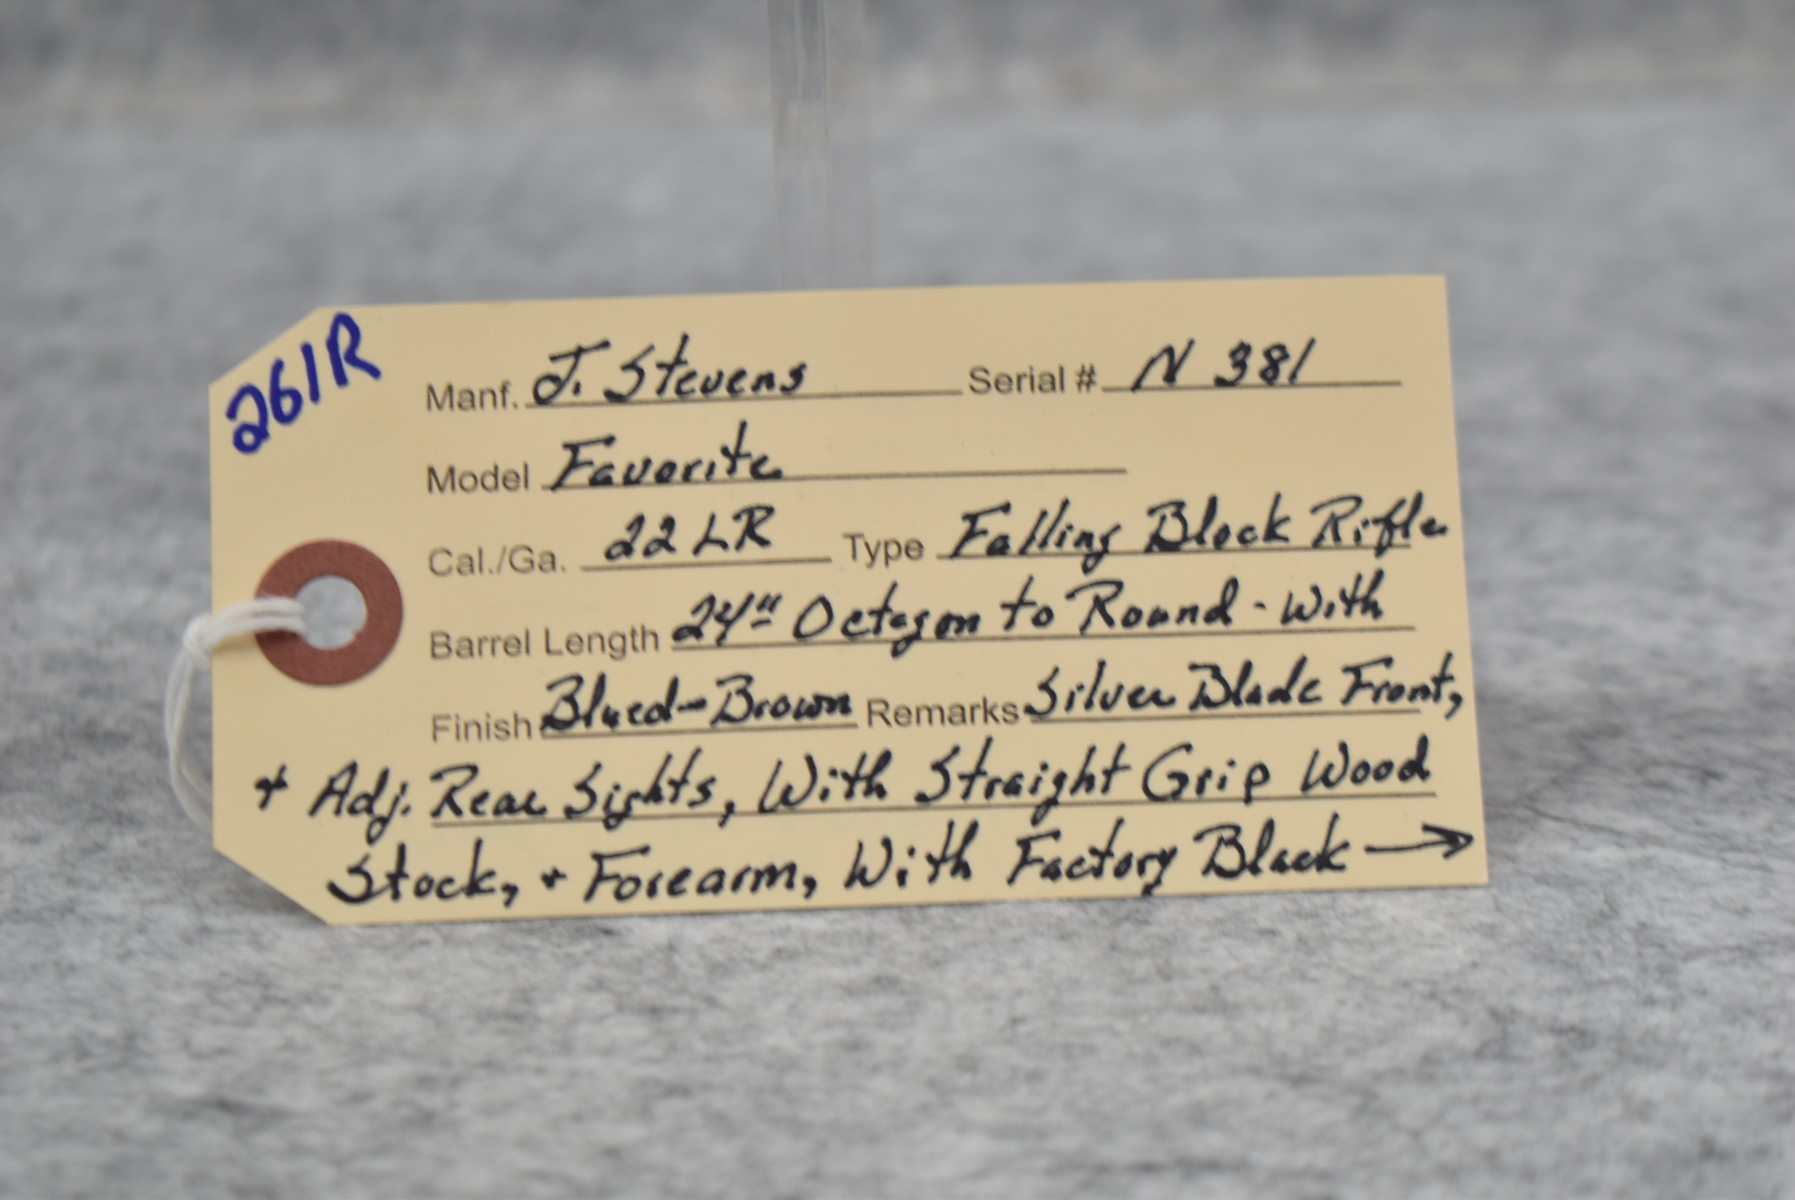 261R
Manf. J. Stevens Serial # N 381
Model Favorite
Cal./Ga. 22 LR Type Falling Block Rifle
Barrel Length 24" Octagon to Round - With
Finish Blued-Brown Remarks Silver Blade Front,
+ Adj. Rear Sights, With Straight Grip Wood
Stock, + Forearm, With Factory Black →